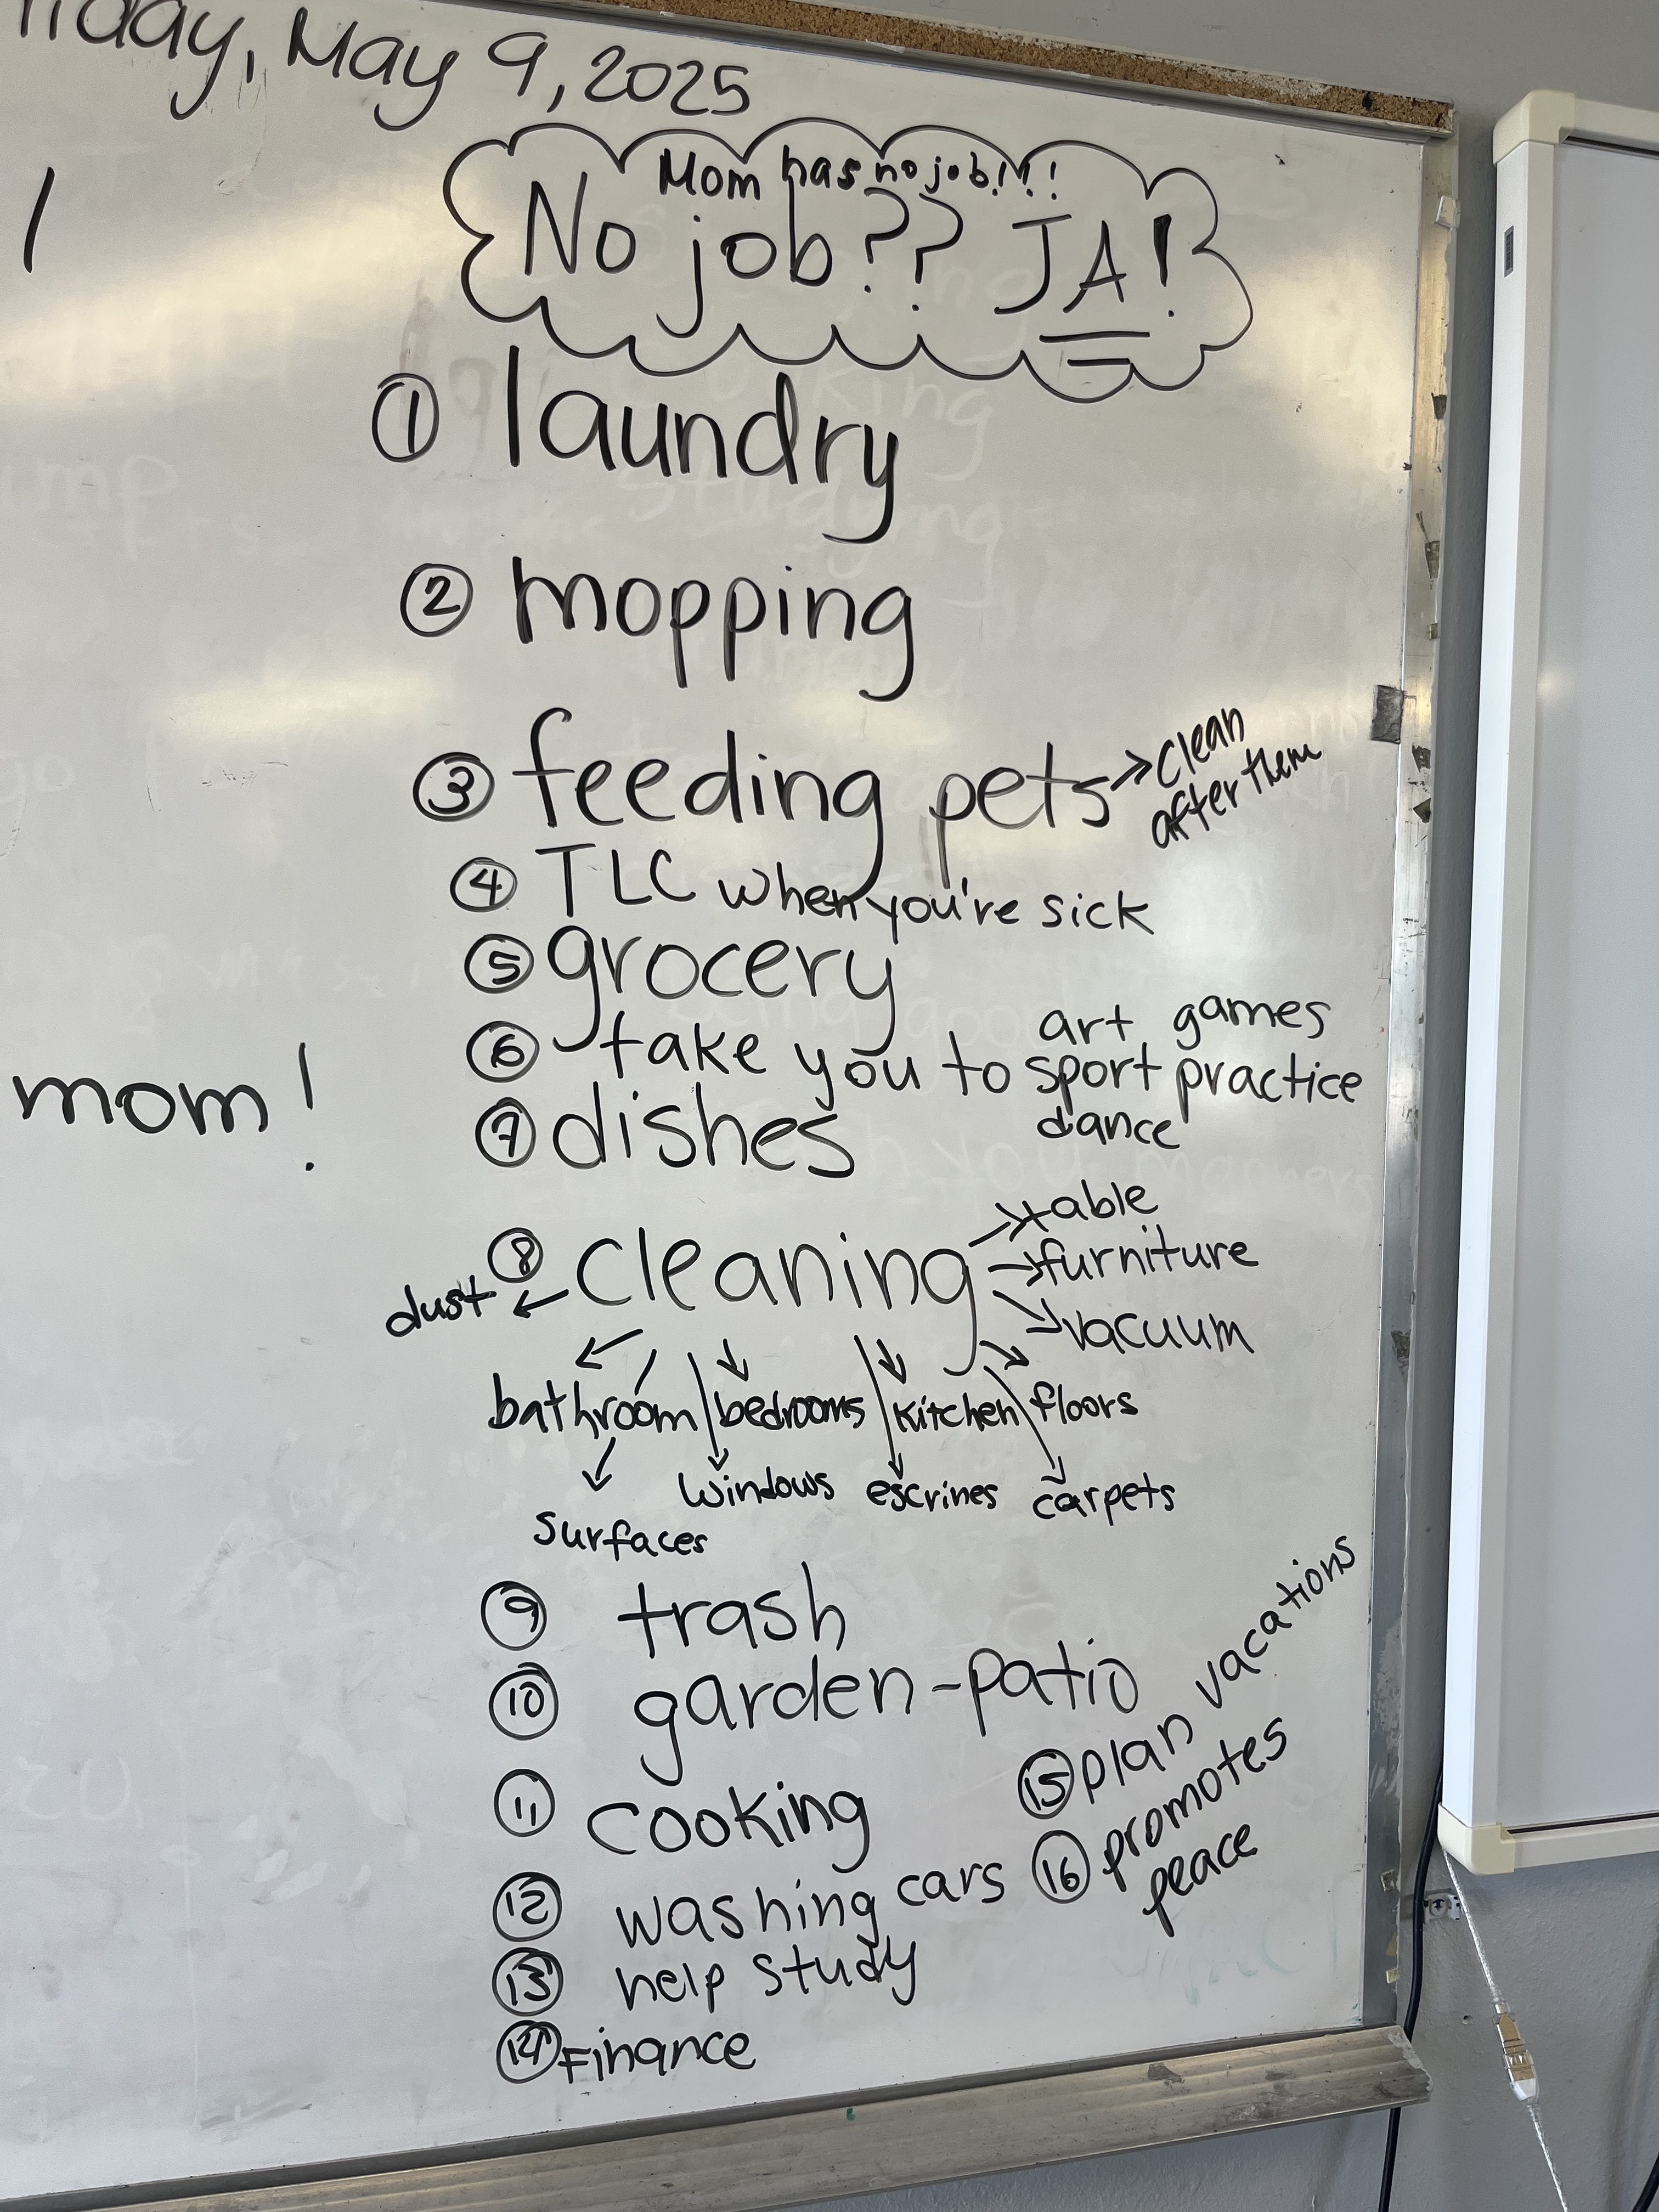 May 9, 2025
Mom has no job!!!
No job?? JA!
① laundry
② mopping
③ feeding pets → clean
after them
④ TLC when you're sick
⑤ grocery
art games
⑥ take you to sport practice
dance
⑦ dishes
mom!
⑧ cleaning
→ table
→ furniture
→ vacuum
dust
bathroom bedrooms kitchen floors
windows escrines carpets
surfaces
⑨ trash
⑩ garden-patio
⑪ cooking
⑫ washing cars
⑬ help study
⑭ Finance
⑮ plan vacations
⑯ promotes
peace